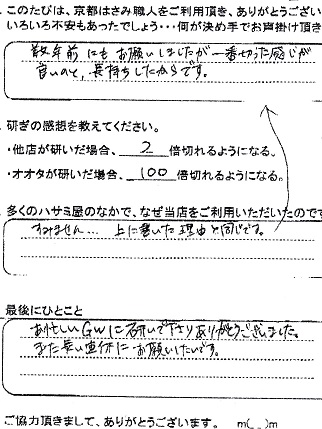 .このたびは、京都はさみ職人をご利用頂き、ありがとうござい
いろいろ不安もあったでしょう・・・何が決め手でお声掛け頂き
数年前にもお願いしましたが一番切った感じが
良いのと、長持ちしたからです。
.研ぎの感想を教えてください。
・他店が研いだ場合、 2 倍切れるようになる。
・オオタが研いだ場合、 100 倍切れるようになる。
.多くのハサミ屋のなかで、なぜ当店をご利用いただいたのです
すみません... 上に書いた理由と同じです。
最後にひとこと
お忙しいGWに研いで下さりありがとうございました。
また長い連休にお願いしたいです。
ご協力頂きまして、ありがとうございます。 m(__)m